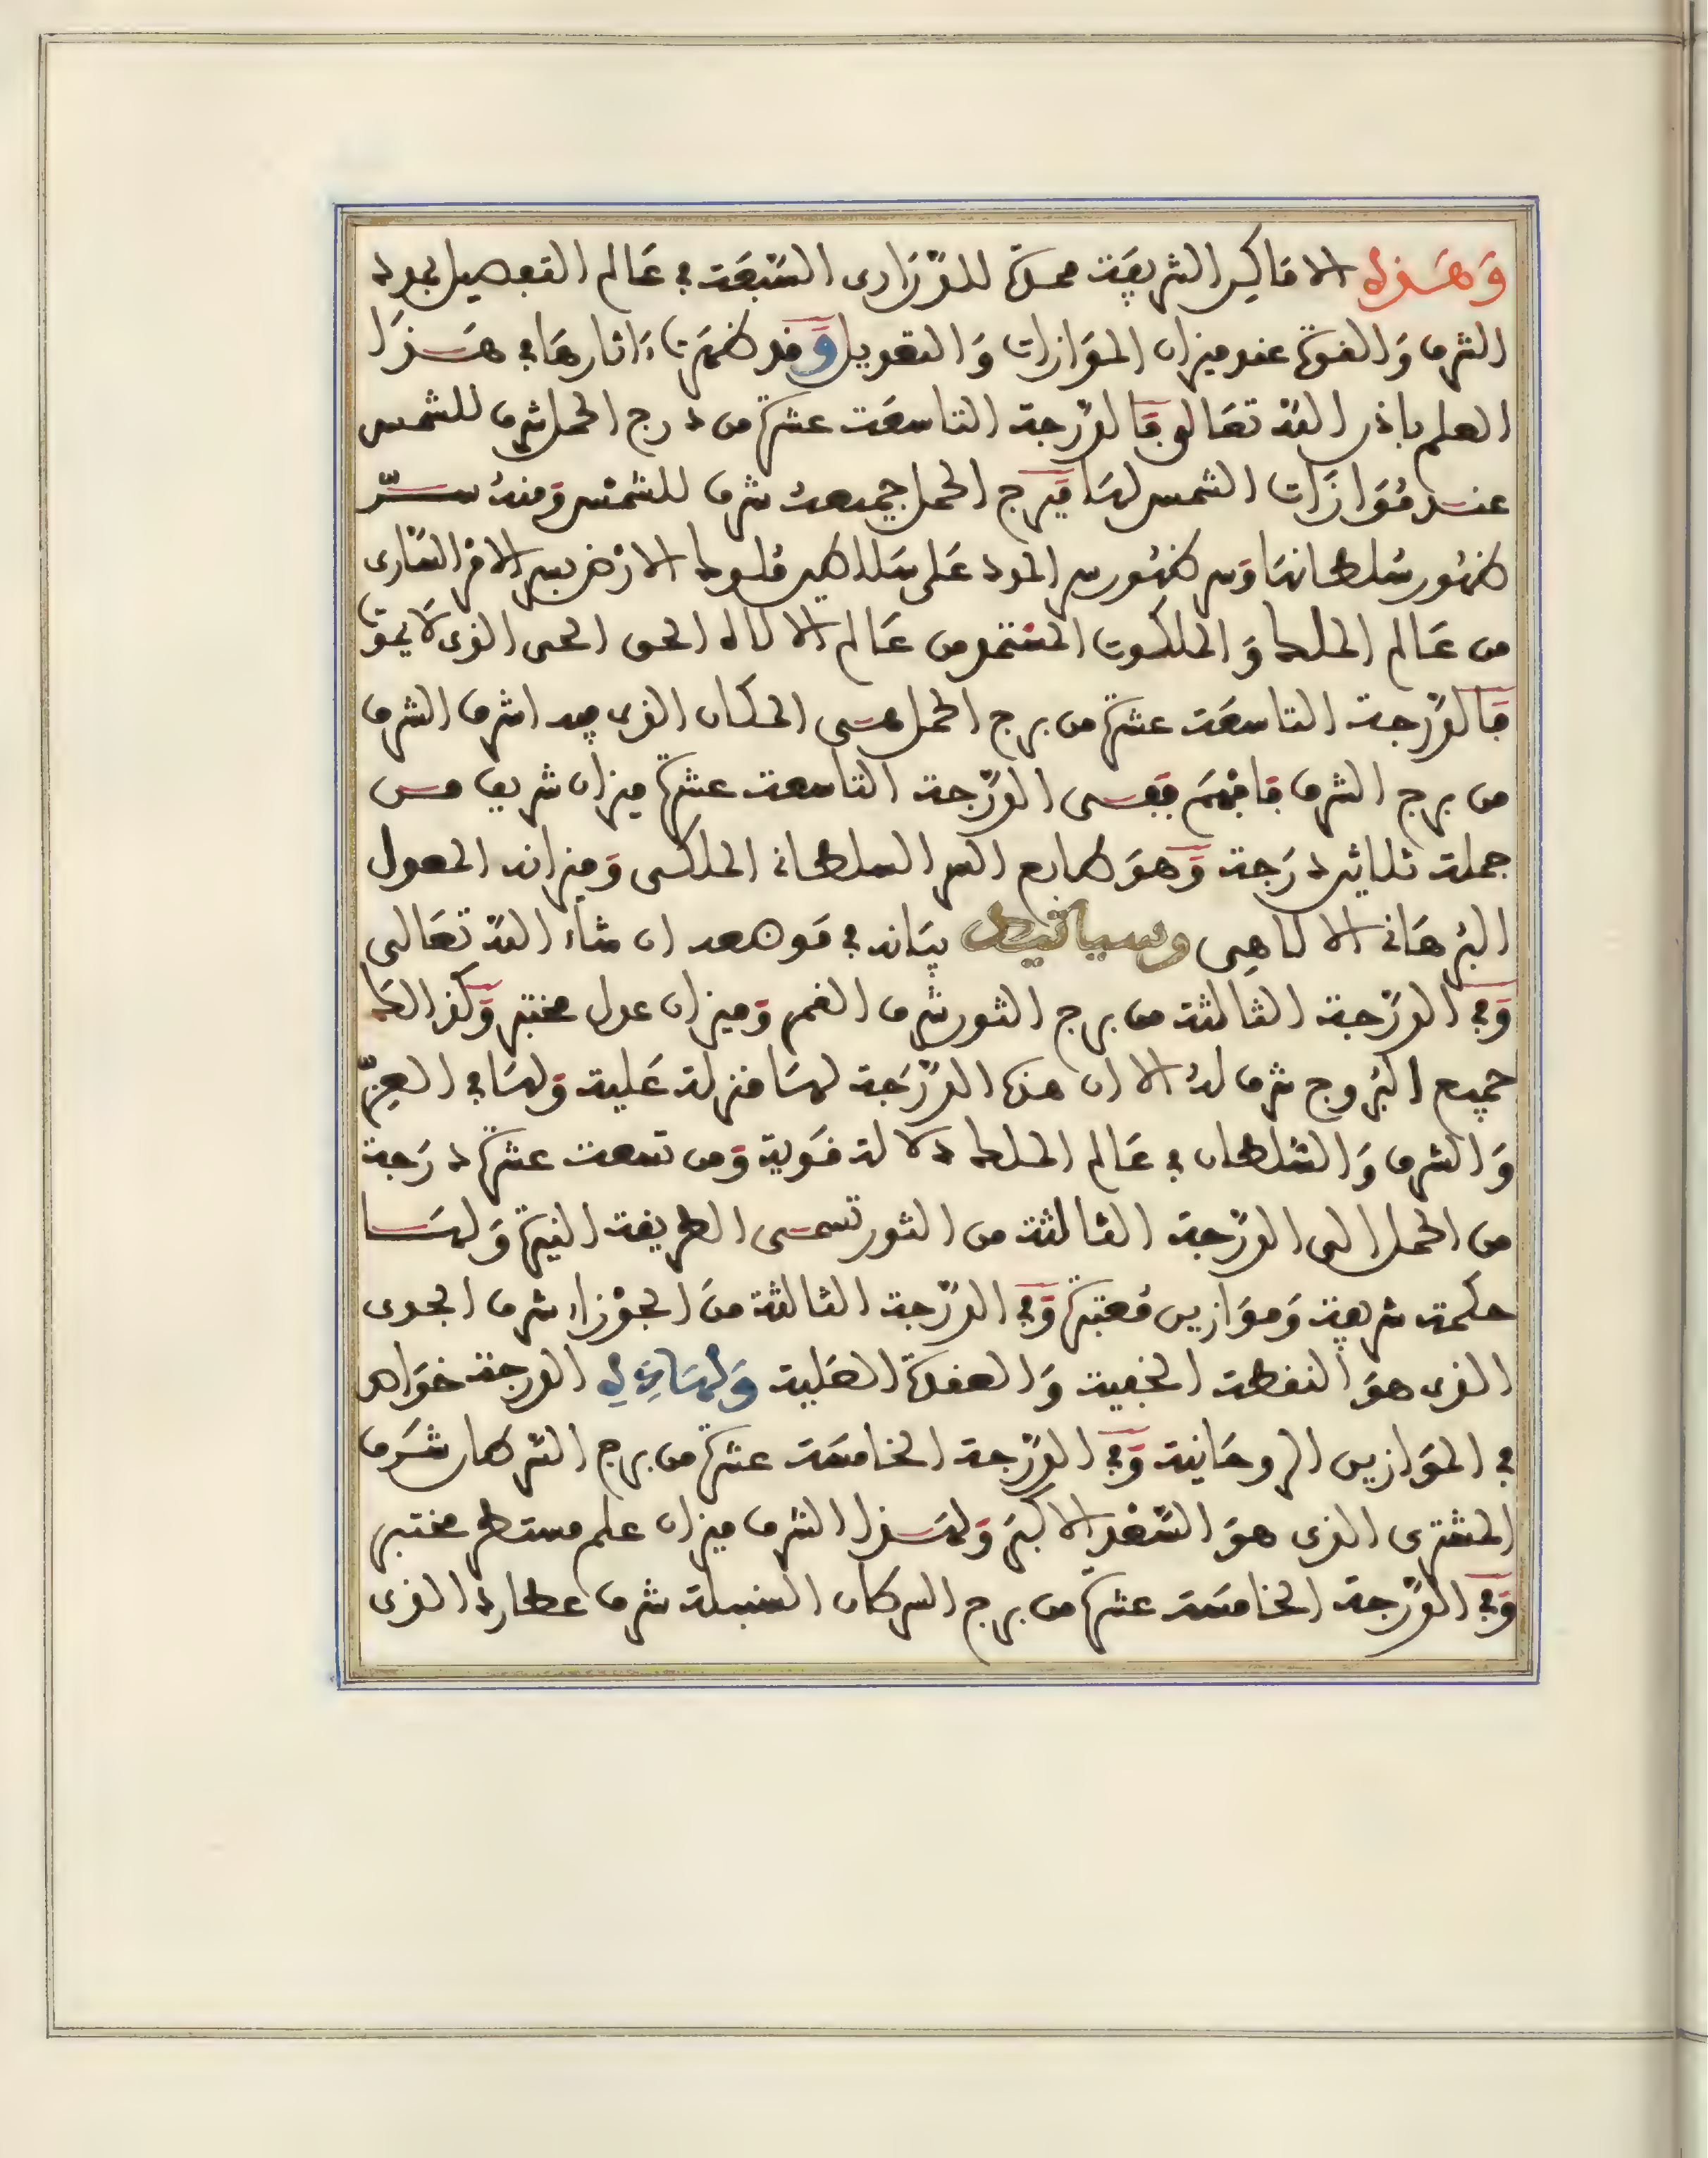 وَهَذه الاماكِن الشريفَة محلة للدّرَارى السَّبعَة في عَالم التفصيل لهولد
الشرف وَالقوة عند ميزان الموَازات وَالتعديل وَقد ظهَرت ءَاثارهَا في هَذَا
العلم باذن اللّه تعَالى فَالدّرجة التاسعَة عشرة من درج الحمل شرف للشمس
عند مُوَازَات الشمس لهَا فبرج الحمل جميعهُ شرف للشمس وَمنهُ سرّ
ظهُور سُلطانهَا وَسر ظهُور سر على سَلاطين مُلوك الارْض بسر الامر السَّارى
من عَالم الملك وَالملكوت المستمد من عَالم الالاه الحق الحى الذى لَا يموت
فَالدّرجة التاسعَة عشرة من برج الحمل هى المكان الذى فيه اشرف الشرف
من برج الشرف فَافهَم فهى الدّرجة التاسعة عشرة ميزان شريف من
جملة ثلاثين درَجة وَهوَ طابع السر السلطانى الملكى وَميزانه المعول
البُرهَانى الالاهِى وسياتيك بيَانه في مَوضعه ان شاء اللّه تعَالى
وَفي الدّرَجة الثالثة من برج الثور شرف القمر وَميزان عدل مختبر وَكذالك
جميع البُروج شرف لهُ الا ان هذه الدّرَجة لهَا منزلة عَلية وَلهَا في العِزّ
وَالشرف وَالسُّلطان في عَالم الملك دلالة قَوية وَمن تسعة عشرة درَجة
من الحمل الى الدّرَجة الثالثة من الثور تسمى الطريقة النيرة وَلهَا
حكمة شريفة وَموَازين مُعتبَرة وَفي الدّرّجة الثالثة منَ الجوْزاء شرف الجدى
الذى هوَ النقطة الخفية وَالعقدة العَلية وَلهَاذِهِ الدرجة خوَاص
في الموَازين الروحَانية وَفي الدّرّجة الخامسَة عشرة من برج السّرطان شَرَف
المشترى الذى هوَ السَّعْد الاكبَر وَلهَذا الشرف ميزان علم مستطر مختبر
وَفي الدّرّجة الخامسَة عشرة من برج السركان السنبلة شرف عطارد الذى